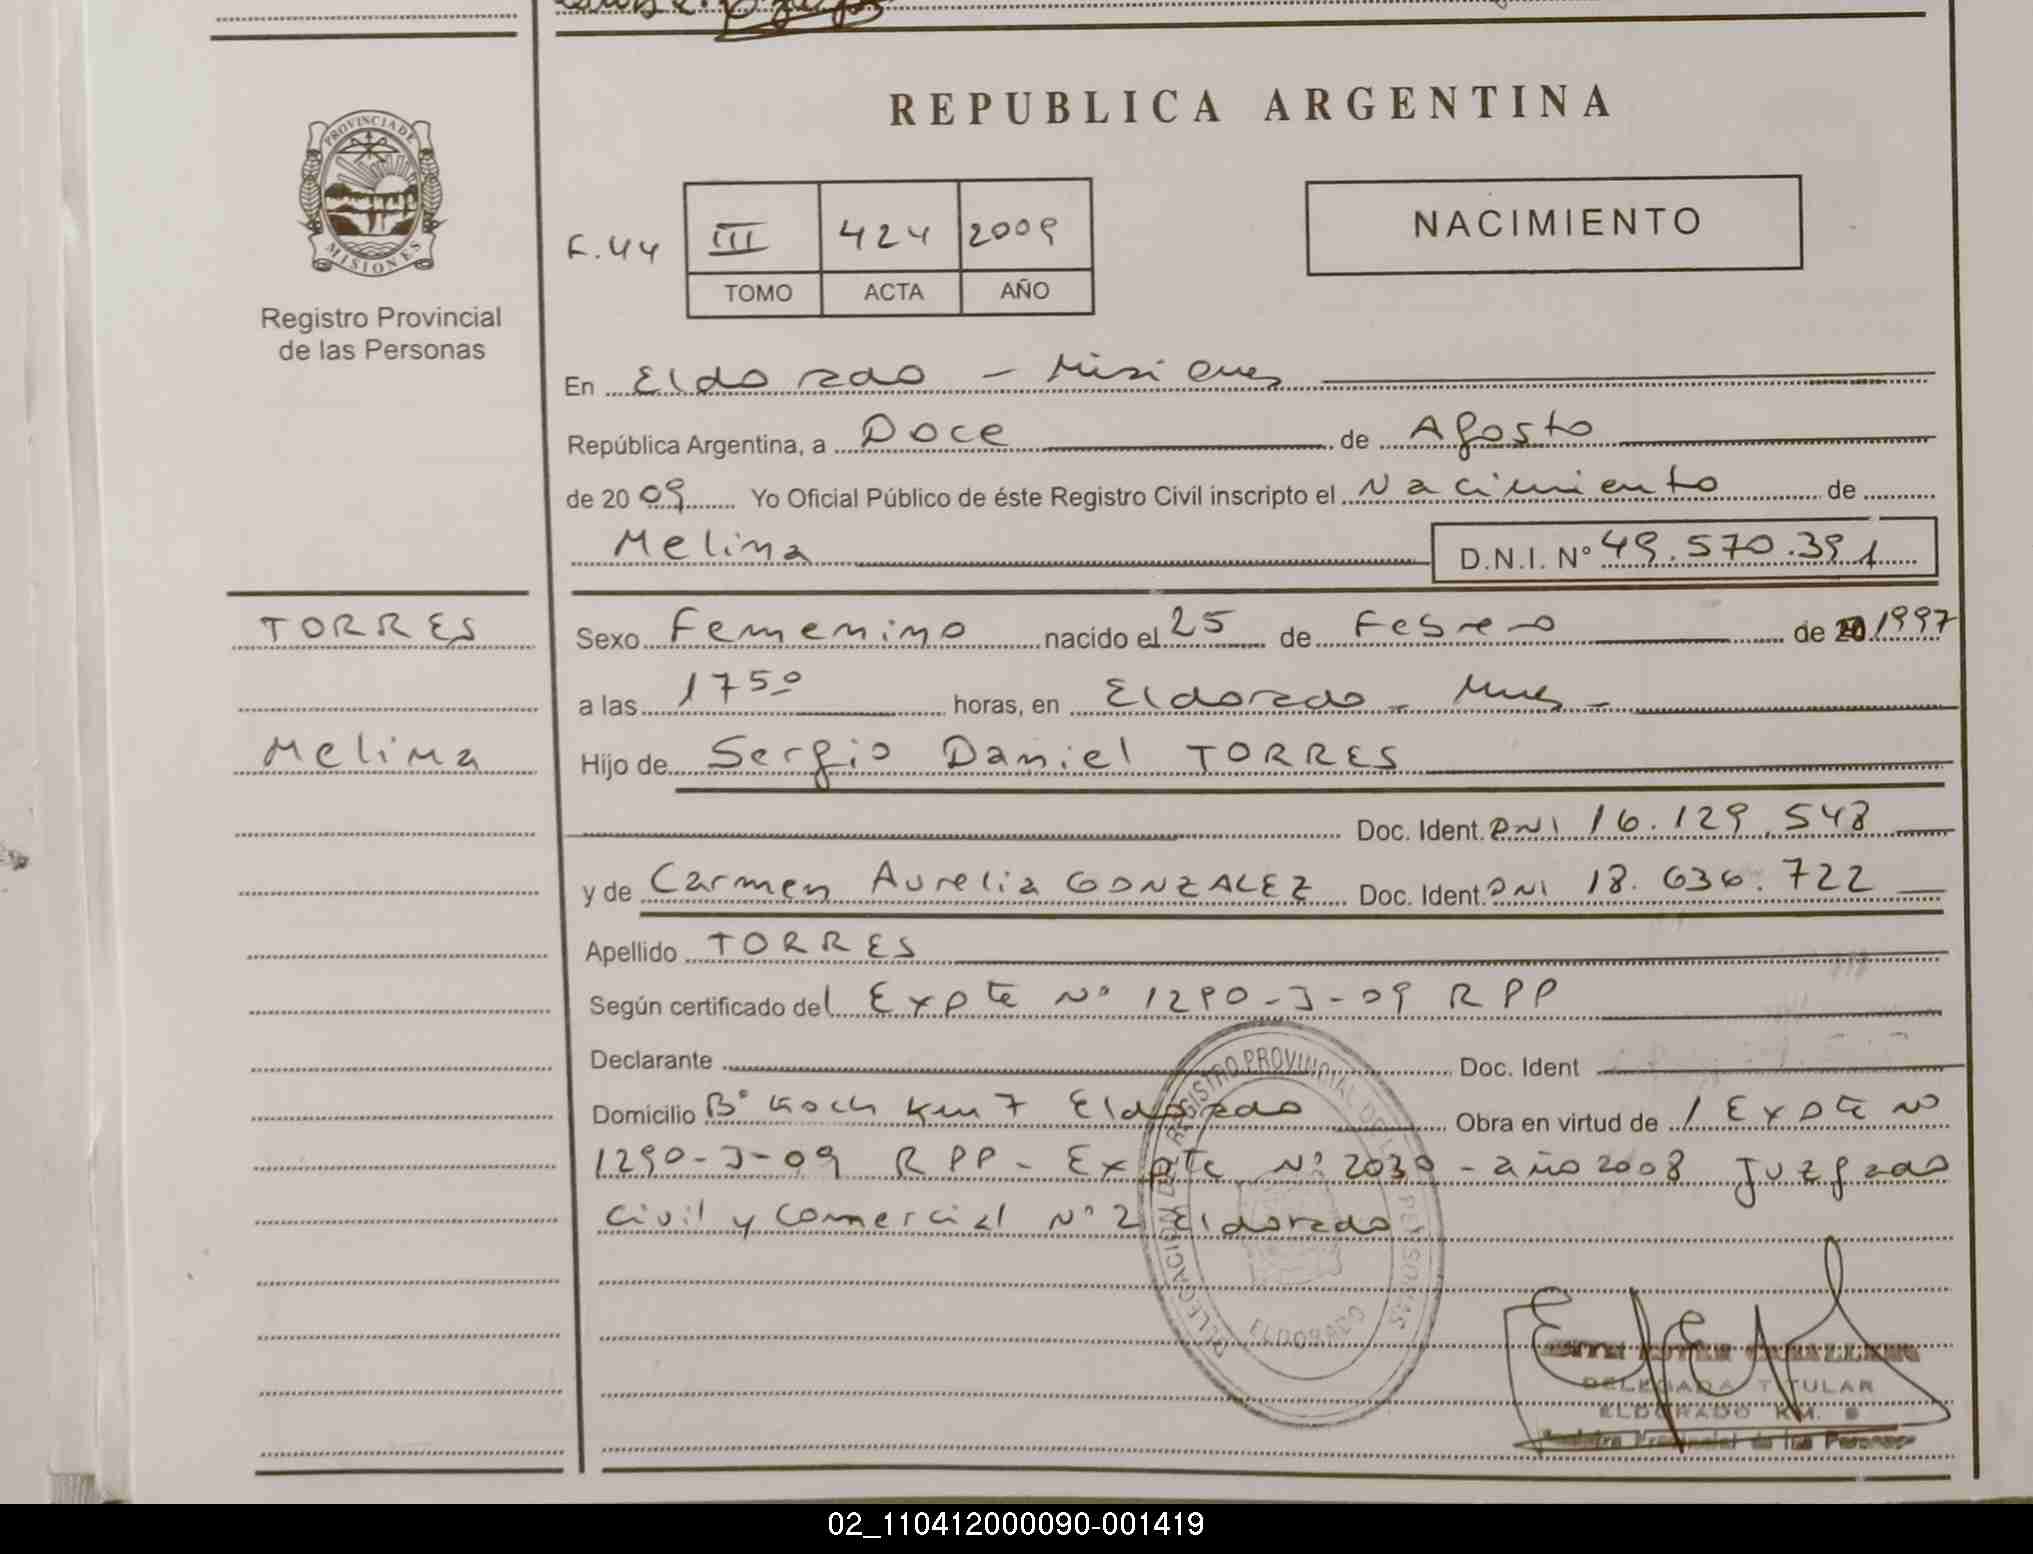 REPUBLICA ARGENTINA
PROVINCIA DE
MISIONES
Registro Provincial
de las Personas
F.44
III 424 2009
TOMO ACTA AÑO
NACIMIENTO
En Eldorado - Misiones
República Argentina, a Doce de Agosto
de 20 09 Yo Oficial Público de éste Registro Civil inscripto el Nacimiento de
Melina D.N.I. Nº 49.570.391
TORRES
Sexo Femenino nacido el 25 de Febrero de 20 1997
a las 1750 horas, en Eldorado - Mnes -
Melina
Hijo de Sergio Daniel TORRES
Doc. Ident. DNI 16.129.548
y de Carmen Aurelia GONZALEZ Doc. Ident. DNI 18.636.722
Apellido TORRES
Según certificado del Expte Nº 1290-J-09 RPP
Declarante Doc. Ident
Domicilio Bº Koch Km 7 Eldorado Obra en virtud de / Expte Nº
1290-J-09 RPP - Expte Nº 2030 - año 2008 Juzgado
Civil y Comercial Nº 2 Eldorado
DELEGACION DEL REGISTRO PROVINCIAL DE LAS PERSONAS
ELDORADO
DELEGADA TITULAR
ELDORADO KM.
Registro Provincial de las Personas
02_110412000090-001419